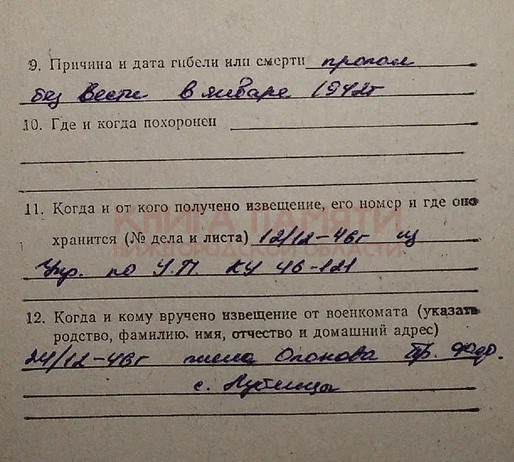 9. Причина и дата гибели или смерти пропал
без вести в январе 1942г
10. Где и когда похоронен
КНИГА ПАМЯТИ
11. Когда и от кого получено извещение, его номер и где оно
хранится (№ дела и листа) 12/12-46г из
Упр. по У.П. КУ 46-121
12. Когда и кому вручено извещение от военкомата (указать
родство, фамилию, имя, отчество и домашний адрес)
24/12-46г жена
с.